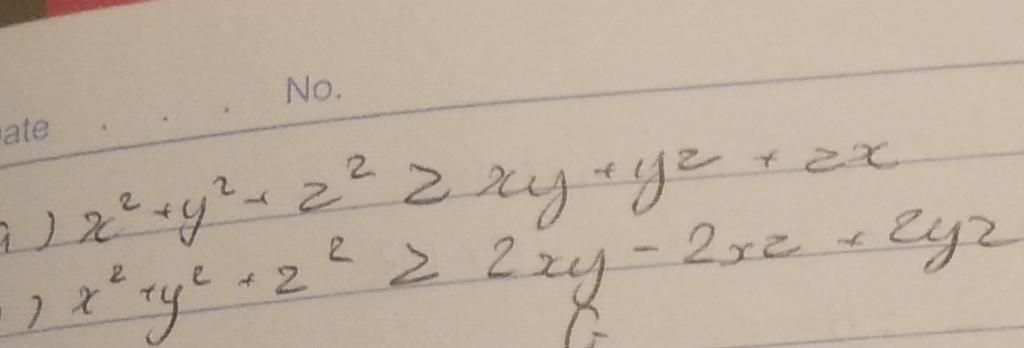 No.
ate . . .
a) x² + y² + z² ≥ xy + yz + zx
) x² + y² + z² ≥ 2xy - 2xz + 2yz